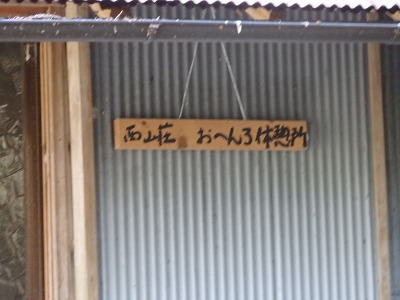 西山荘 おへんろ休憩所